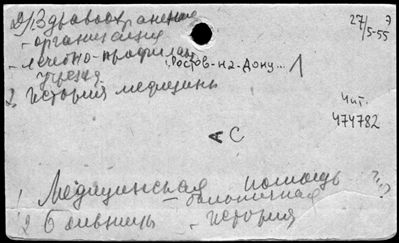 1) Здравоохранение
- организация
- лечебно-профилак
учрежд
г. Ростов-на-Дону... 1
2. История медицины
27/5-55 Э
Чит.
474782
А С
1 Медицинская помощь
- больничная
2 Больницы - история
?